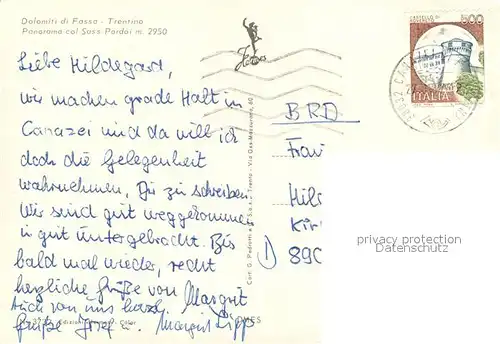 Dolomiti di Fassa - Trentino
Panorama col Sass Pordoi m. 2950
500
ITALIA
Liebe Hildegard,
wir machen grade Halt in
Canazei und da will ich
doch die Gelegenheit
wahrnehmen, Dir zu schreiben.
Wir sind gut weggekommen
u. gut untergebracht. Bis
bald mal wieder, recht
herzliche Grüße von Margrit
Auch von uns herzl.
Grüße Josef u. Margit
BRD
Frau
Hil
Kir
D 890
privacy protection
Datenschutz